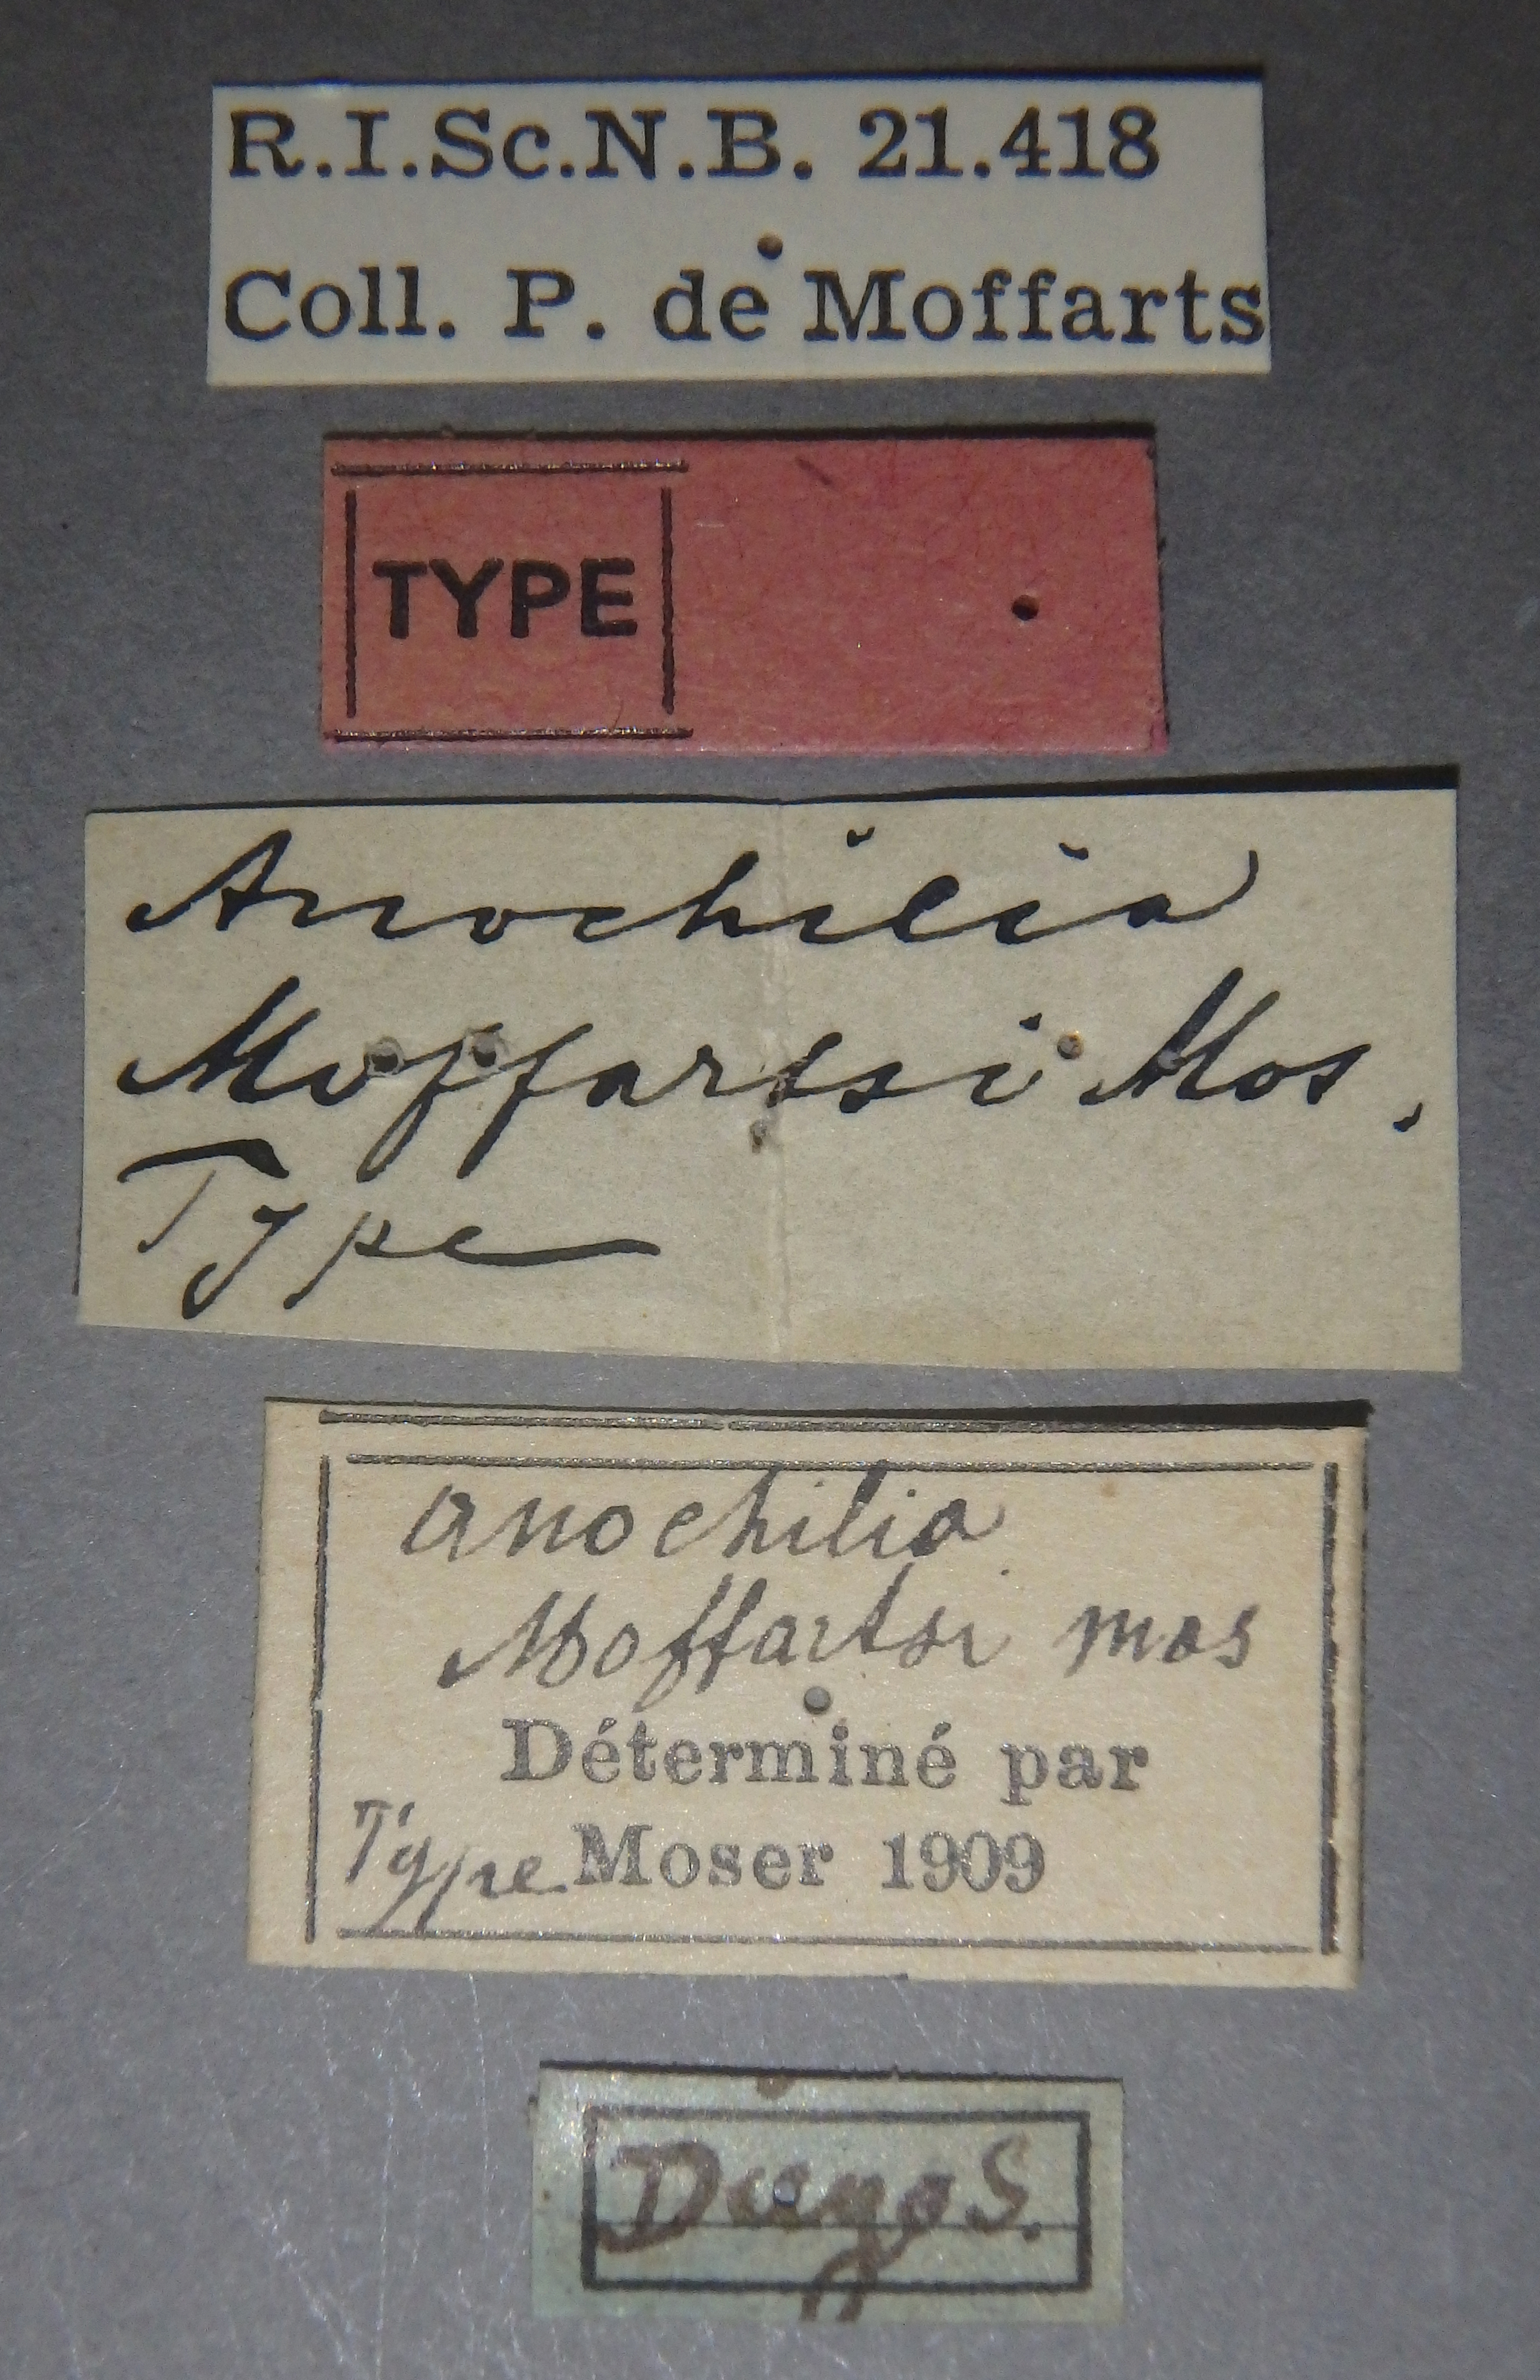 R.I.Sc.N.B. 21.418
Coll. P. de Moffarts
TYPE
Anochilia
Moffartsi Mos.
Type
Anochilia
Moffartsi mos
Déterminé par
Type Moser 1909
S.